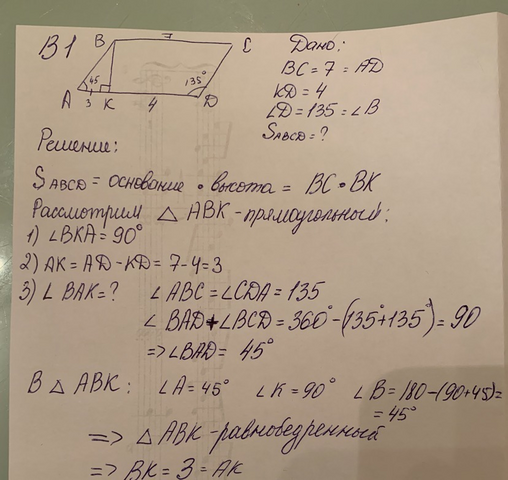 B1
B 7 C
45 135°
A 3 K 4 D
Дано:
BC = 7 = AD
KD = 4
∠D = 135 = ∠B
SABCD = ?
Решение:
SABCD = основание • высота = BC • BK
Рассмотрим △ ABK - прямоугольный:
1) ∠BKA = 90°
2) AK = AD - KD = 7-4 = 3
3) ∠ BAK = ? ∠ ABC = ∠CDA = 135
∠ BAD + ∠BCD = 360° - (135° + 135°) = 90
=> ∠BAD = 45°
В △ ABK: ∠A = 45° ∠K = 90° ∠B = 180 - (90+45) =
= 45°
=> △ ABK - равнобедренный
=> BK = 3 = AK